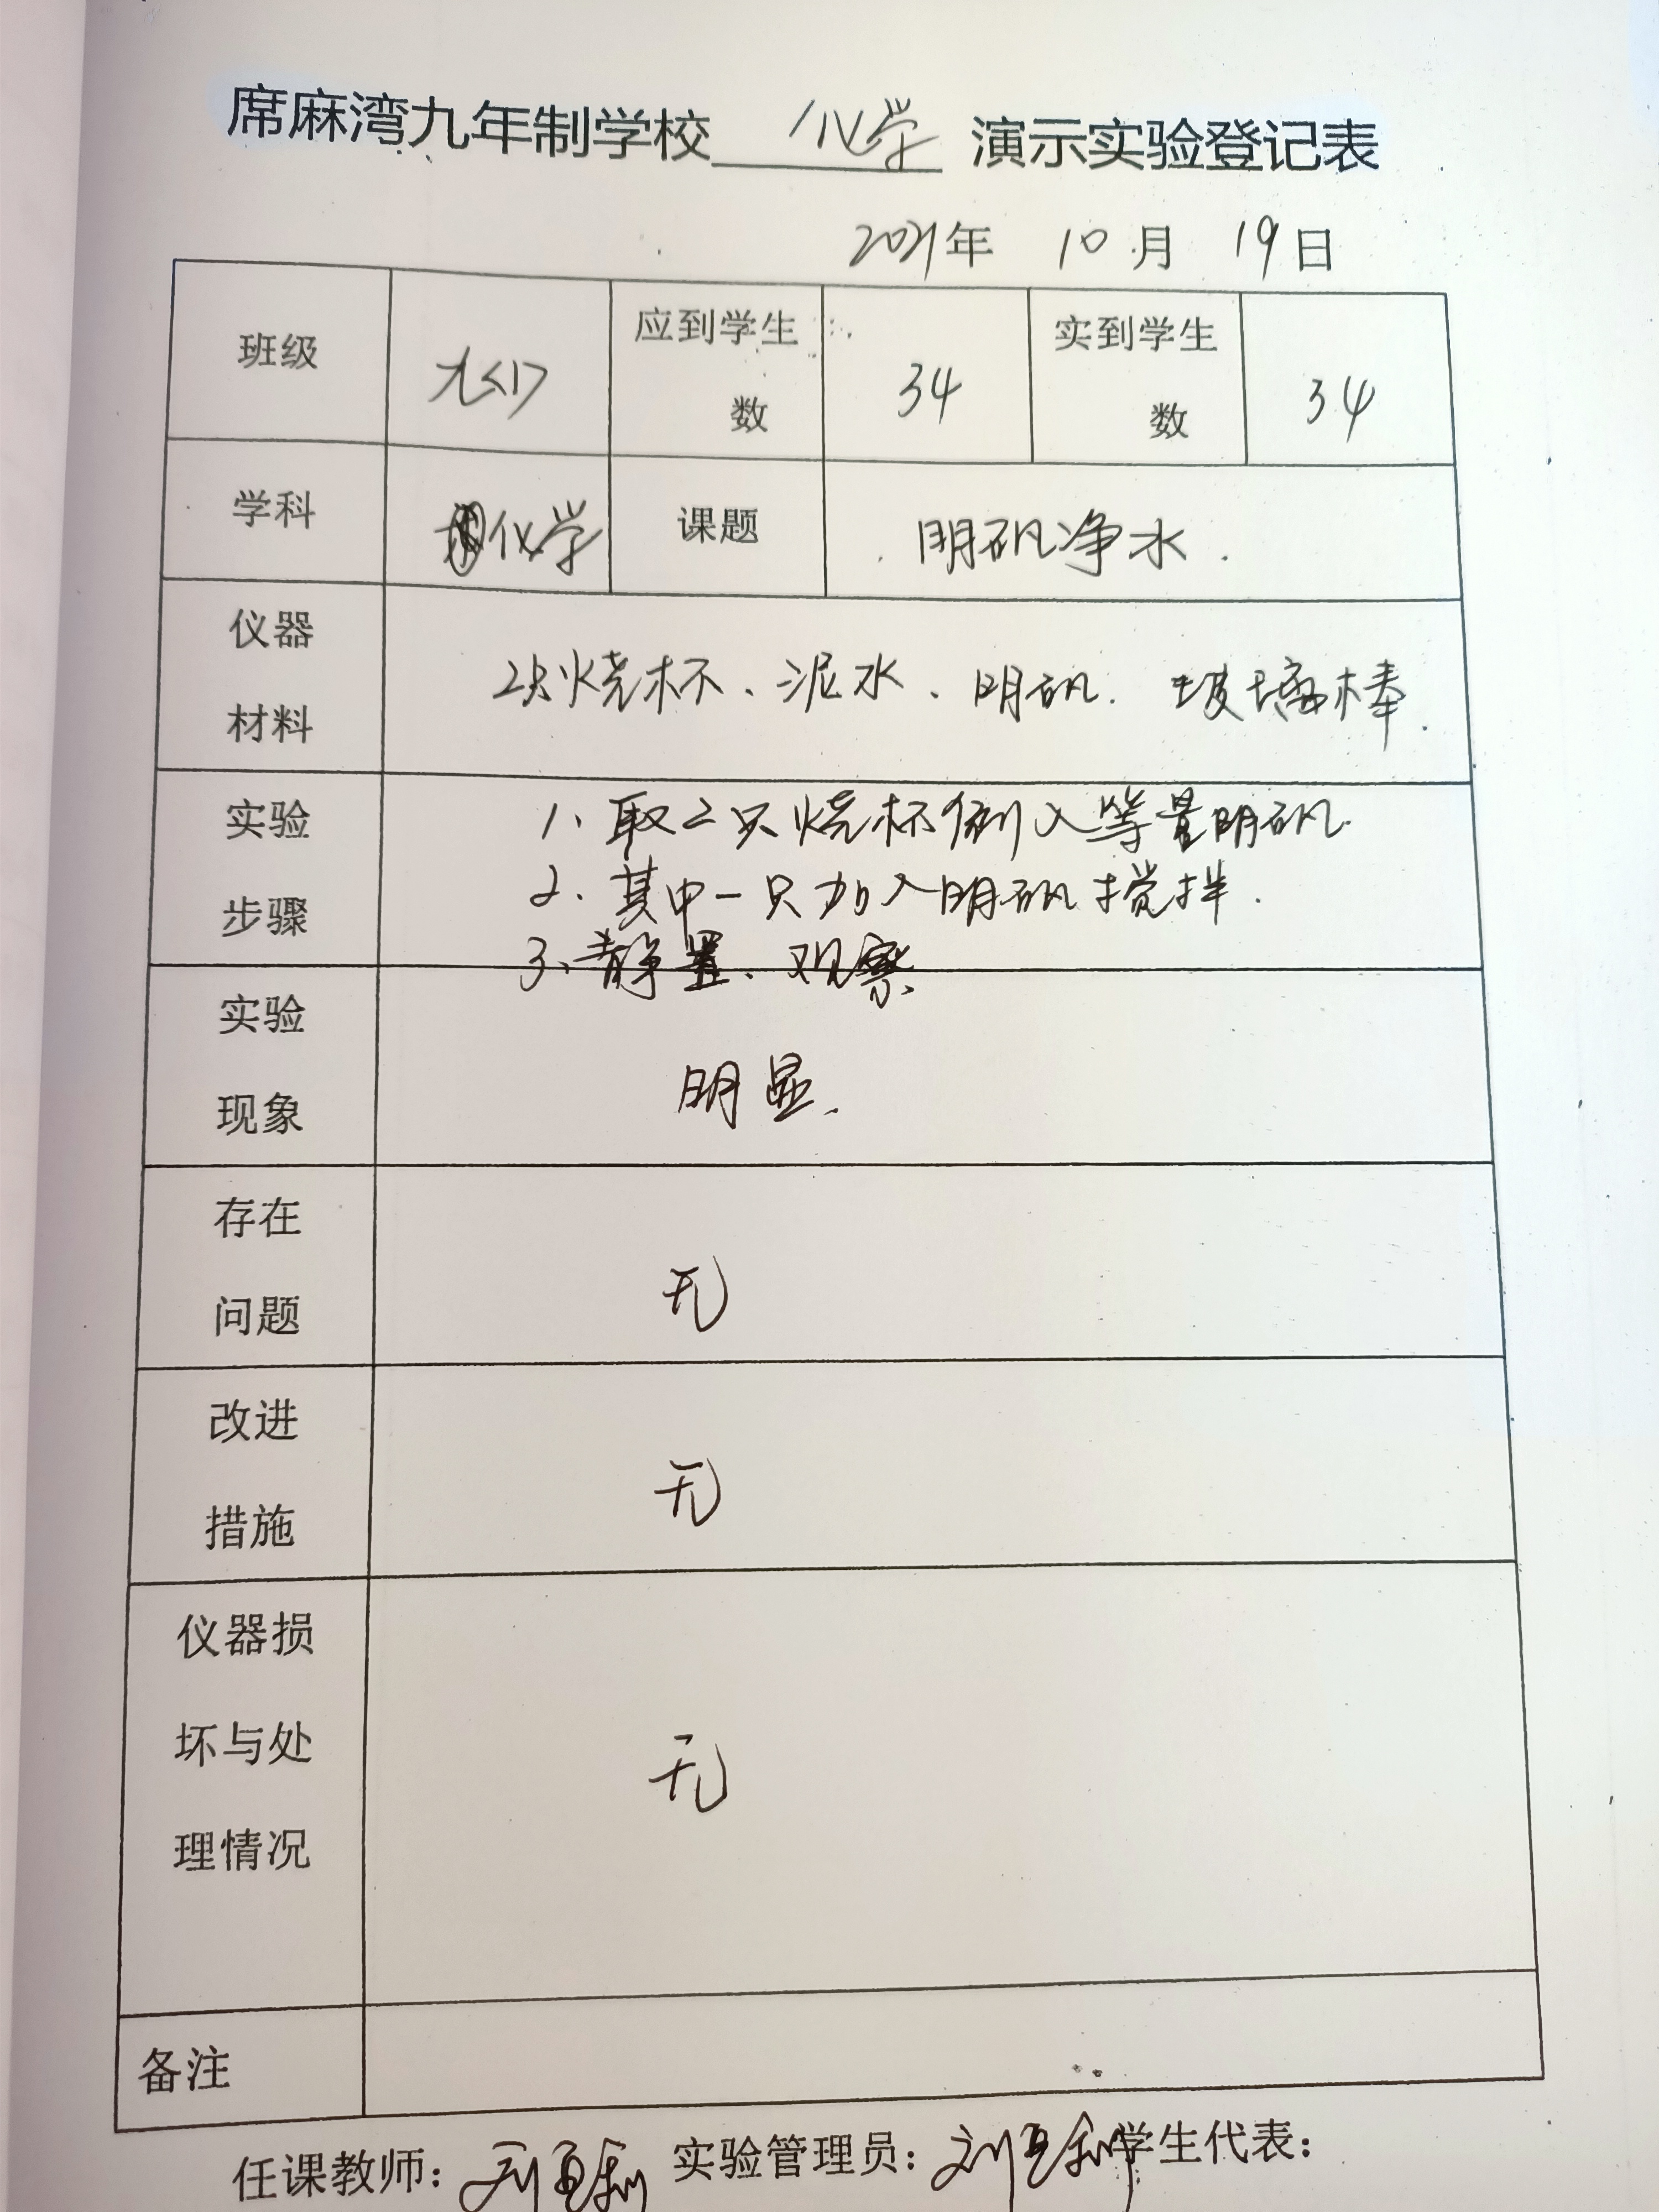 席麻湾九年制学校 化学 演示实验登记表
2021年 10月 19日
班级 九<1> 应到学生数 34 实到学生数 34
学科 化学 课题 明矾净水.
仪器材料 2只烧杯、泥水、明矾. 玻璃棒.
实验步骤 1、取二只烧杯倒入等量明矾.
2、其中一只加入明矾搅拌.
3、静置、观察
实验现象 明显.
存在问题 无
改进措施 无
仪器损坏与处理情况 无
备注
任课教师: 实验管理员: 学生代表: